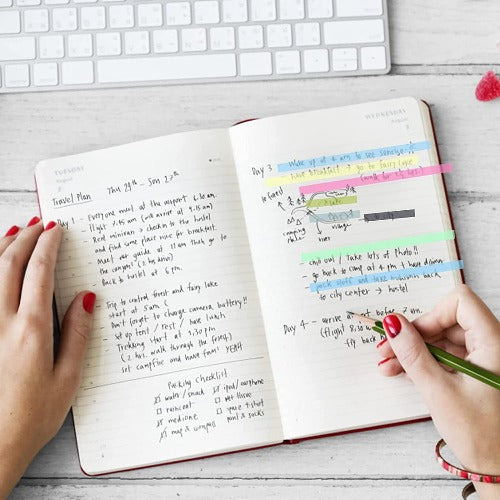 TUESDAY
August
Travel Plan Thu 24th - Sun 27th
Day 1 - Everyone meet at the airport 6 am.
Flight 7.45 am (will arrive at 9.15 am)
Rent minivan > check in to the hostel
and find some place nice for breakfast.
Meet our guide at 11 am then go to
the canyon! (2 hrs drive)
Back to hostel at 6 pm.
Trip to control forest and fairy lake
start at 5 am
Don't forget to charge camera, battery!!
Set up tent / rest / have lunch
Trekking start at 1.30 pm
(2 hrs. walk through the forest)
Set campfire and have fun! YEAH
Packing Checklist
water/snack ipod/earphone
raincoat wet tissue
medicine spare t-shirt
map & compass pant & socks
WEDNESDAY
August
Day 3 - Wake up at 4 am to see sunrise
Have breakfast > go to Fairy Lake
(walk for 2 hrs)
forest
lake
camping
place
river
village
- chill out / take lots of photo!!
- go back to camp at 4 pm + have dinner
- pack stuffs and take minivan back
to city center → hostel
Day 4 - arrive at airport before
(flight 8.30
fly back